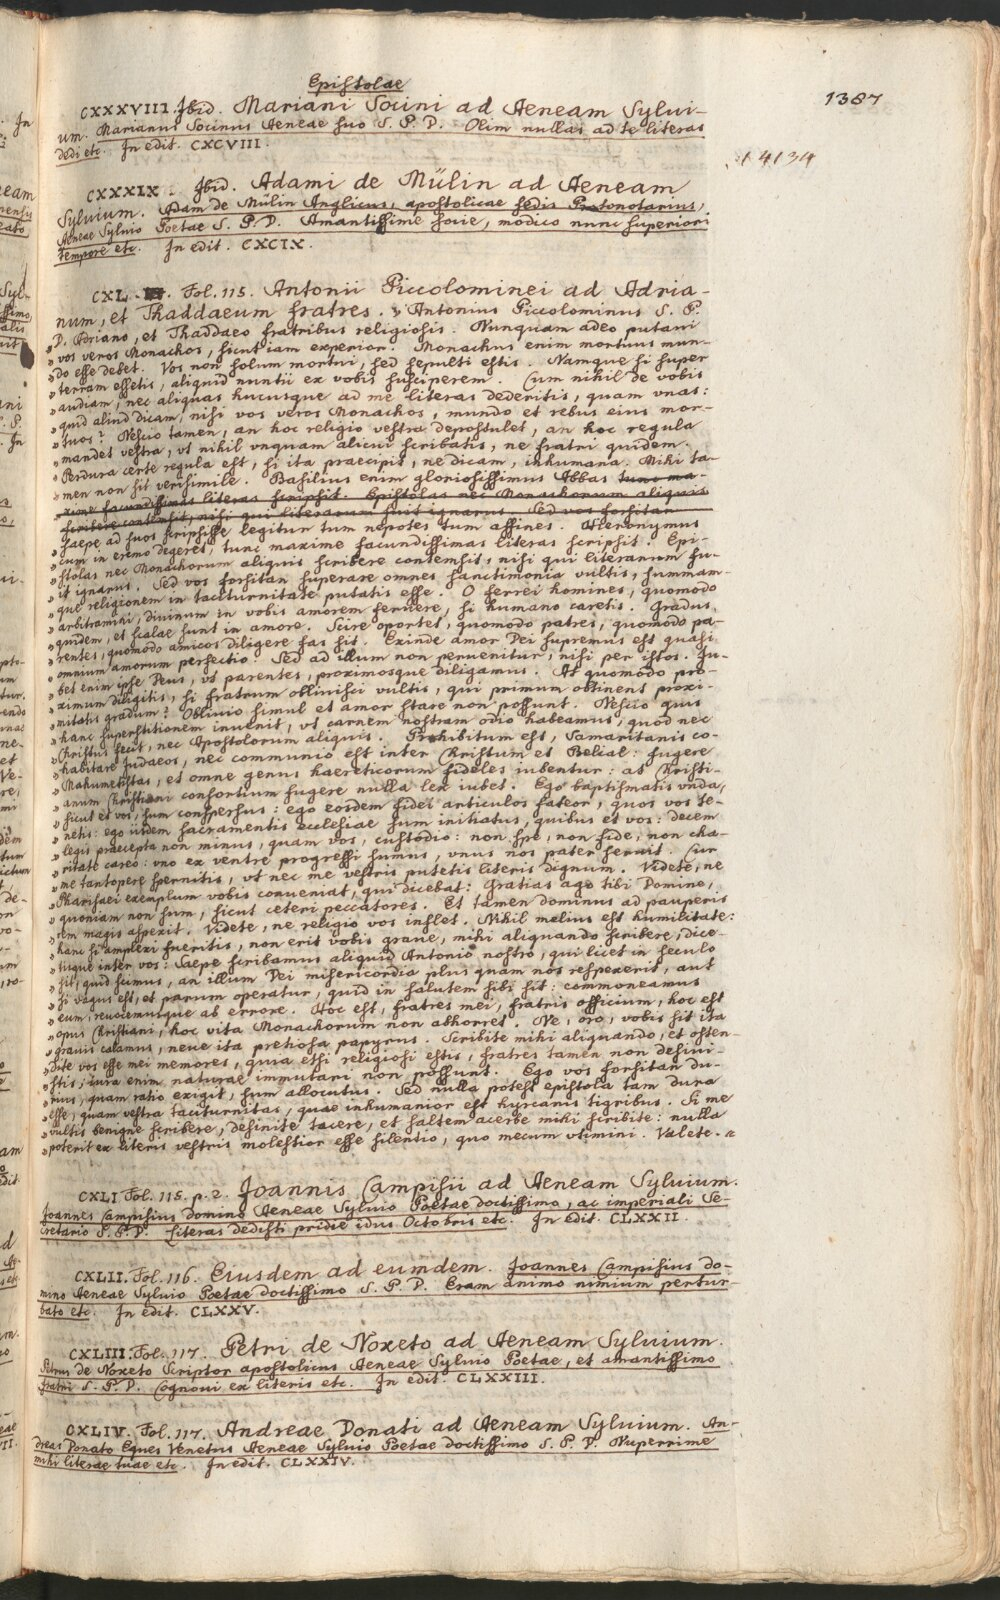 Epistolae
1387
CXXXVIII. Ibid. Mariani Socini ad Aeneam Sylvi-
um. Marianus Socinus Aeneae suo S. P. D. Olim nullas ad te literas
dedi etc. In edit. CXCVIII.
14134
CXXXIX. Ibid. Adami de Mülin ad Aeneam
Sylvium. Adam de Mülin Anglicus, apostolicae sedis Protonotarius,
Aeneae Sylvio Poetae S. P. D. Amantissime socie, modico nunc superiori
tempore etc. In edit. CXCIX.
CXL. Fol. 115. Antonii Piccolominei ad Adria-
num, et Thaddaeum fratres. „Antonius Piccolominus S. P.
D. Adriano, et Thaddaeo fratribus religiosis. Nunquam adeo putavi
„vos veros Monachos, sicut iam experior. Monachus enim mortuus mun-
„do esse debet. Vos non solum mortui, sed sepulti estis. Namque si super
„terram essetis, aliquid nuntii ex vobis susciperem. Cum nihil de vobis
„audiam, nec aliquas hucusque ad me literas dederitis, quam unas:
„quid aliud dicam, nisi vos veros Monachos, mundo et rebus eius mor-
„tuos? Nescio tamen, an hoc religio vestra depostulet, an hoc regula
„mandet vestra, vt nihil vnquam alicui scribatis, ne fratri quidem.
„Perdura certe regula est, si ita praecipit, ne dicam, inhumana. Mihi ta-
„men non fit verisimile. Basilius enim gloriosissimus Abbas tunc ma-
xime facundissimas literas scripsit. Epistolas nec Monachorum aliquis
scribere contempsit, nisi qui literarum fuit ignarus. Sed vos forsitan
„saepe ad suos scripsisse legitur tum nepotes tum affines. Hieronymus
„cum in eremo degeret, tunc maxime facundissimas literas scripsit. Epi-
„stolas nec Monachorum aliquis scribere contemsit, nisi qui literarum fu-
„it ignarus. Sed vos forsitan superare omnes sanctimonia vultis, summam-
„que religionem in taciturnitate putatis esse. O ferrei homines, quomodo
„arbitramini, divinum in vobis amorem fervere, si humano caretis. Gradus
„quidem, et scalae sunt in amore. Scire oportet, quomodo patres, quomodo pa-
„rentes, quomodo amicos diligere fas sit. Exinde amor Dei supremus est quasi
„omnium amorum perfectio. Sed ad illum non pervenitur, nisi per istos. Ju-
„bet enim ipse Deus, vt parentes, proximosque diligamus. At quomodo pro-
„ximum diligitis, si fratrum oblivisci vultis, qui primum obtinent proxi-
„mitatis gradum? Oblivio simul et amor stare non possunt. Nescio quis
„hanc superstitionem invenit, vt carnem nostram odio habeamus, quod nec
„Christus fecit, nec Apostolorum aliquis. Prohibitum est, Samaritanis co-
„habitare Judaeos, nec communio est inter Christum et Belial: fugere
„Mahumetistas, et omne genus haereticorum fideles iubentur: at Christi-
„anum Christiani consortium fugere nulla lex iubet. Ego baptismatis vnda,
„sicut et vos, sum conspersus: ego eosdem fidei articulos fateor, quos vos te-
„netis: ego iisdem sacramentis ecclesiae sum initiatus, quibus et vos: decem
„legis praecepta non minus, quam vos, custodio: non spe, non fide, non cha-
„ritate careo: vno ex ventre progressi sumus, vnus nos pater genuit. Cur
„me tantopere spernitis, ut nec me vestris putetis literis dignum. Videte, ne
„Pharisaei exemplum vobis conveniat, qui dicebat: Gratias ago tibi Domine,
„quoniam non sum, sicut ceteri peccatores. Et tamen dominus ad pauperis
„rem magis aspexit. Videte, ne religio vos inflet. Nihil melius est humilitate:
„hanc si amplexi fueritis, non erit vobis grave, mihi aliquando scribere, dice-
„tisque inter vos: Saepe scribamus aliquid Antonio nostro, qui licet in seculo
„sit, quid scimus, an illum Dei misericordia plus quam nos respexerit, aut
„si vagus est, et parum operatur, quid in salutem sibi sit: commoneamus
„eum, revocemusque ab errore. Hoc est, fratres mei, fratris officium, hoc est
„opus Christiani, hoc vita Monachorum non abhorret. Ne, oro, vobis sit ita
„gravis calamus, neve ita pretiosa papyrus. Scribite mihi aliquando, et osten-
„dite vos esse mei memores, quia etsi religiosi estis, fratres tamen non desivi-
„stis; iura enim naturae immutari non possunt. Ego vos forsitan du-
„rius, quam ratio exigit, sum allocutus. Sed nulla potest epistola tam dura
„esse, quam vestra taciturnitas, quae inhumanior est hyrcanis tigribus. Si me
„vultis benigne scribere, desinite tacere, et saltem acerbe mihi scribite: nulla
„poterit ex literis vestris molestior esse silentio, quo mecum vtimini. Valete. „
CXLI Fol. 115. p. 2. Joannis Campisii ad Aeneam Sylvium.
Joannes Campisius domino Aeneae Sylvio Poetae doctissimo, ac imperiali Se-
cretario S. P. D. Literas dedisti pridie idus Octobris etc. In Edit. CLXXII.
CXLII. Fol. 116. Eiusdem ad eumdem. Joannes Campisius do-
mino Aeneae Sylvio Poetae doctissimo S. P. D. Eram animo nimium pertur-
bato etc. In edit. CLXXV.
CXLIII. Fol. 117. Petri de Noxeto ad Aeneam Sylvium.
Petrus de Noxeto Scriptor apostolicus Aeneae Sylvio Poetae, et amantissimo
fratri S. P. D. Cognovi ex literis etc. In edit. CLXXIII.
CXLIV. Fol. 117. Andreae Donati ad Aeneam Sylvium. An-
dreas Donato Eques Venetus Aeneae Sylvio Poetae doctissimo S. P. D. Nuperrime
mihi literae tuae etc. In edit. CLXXIV.